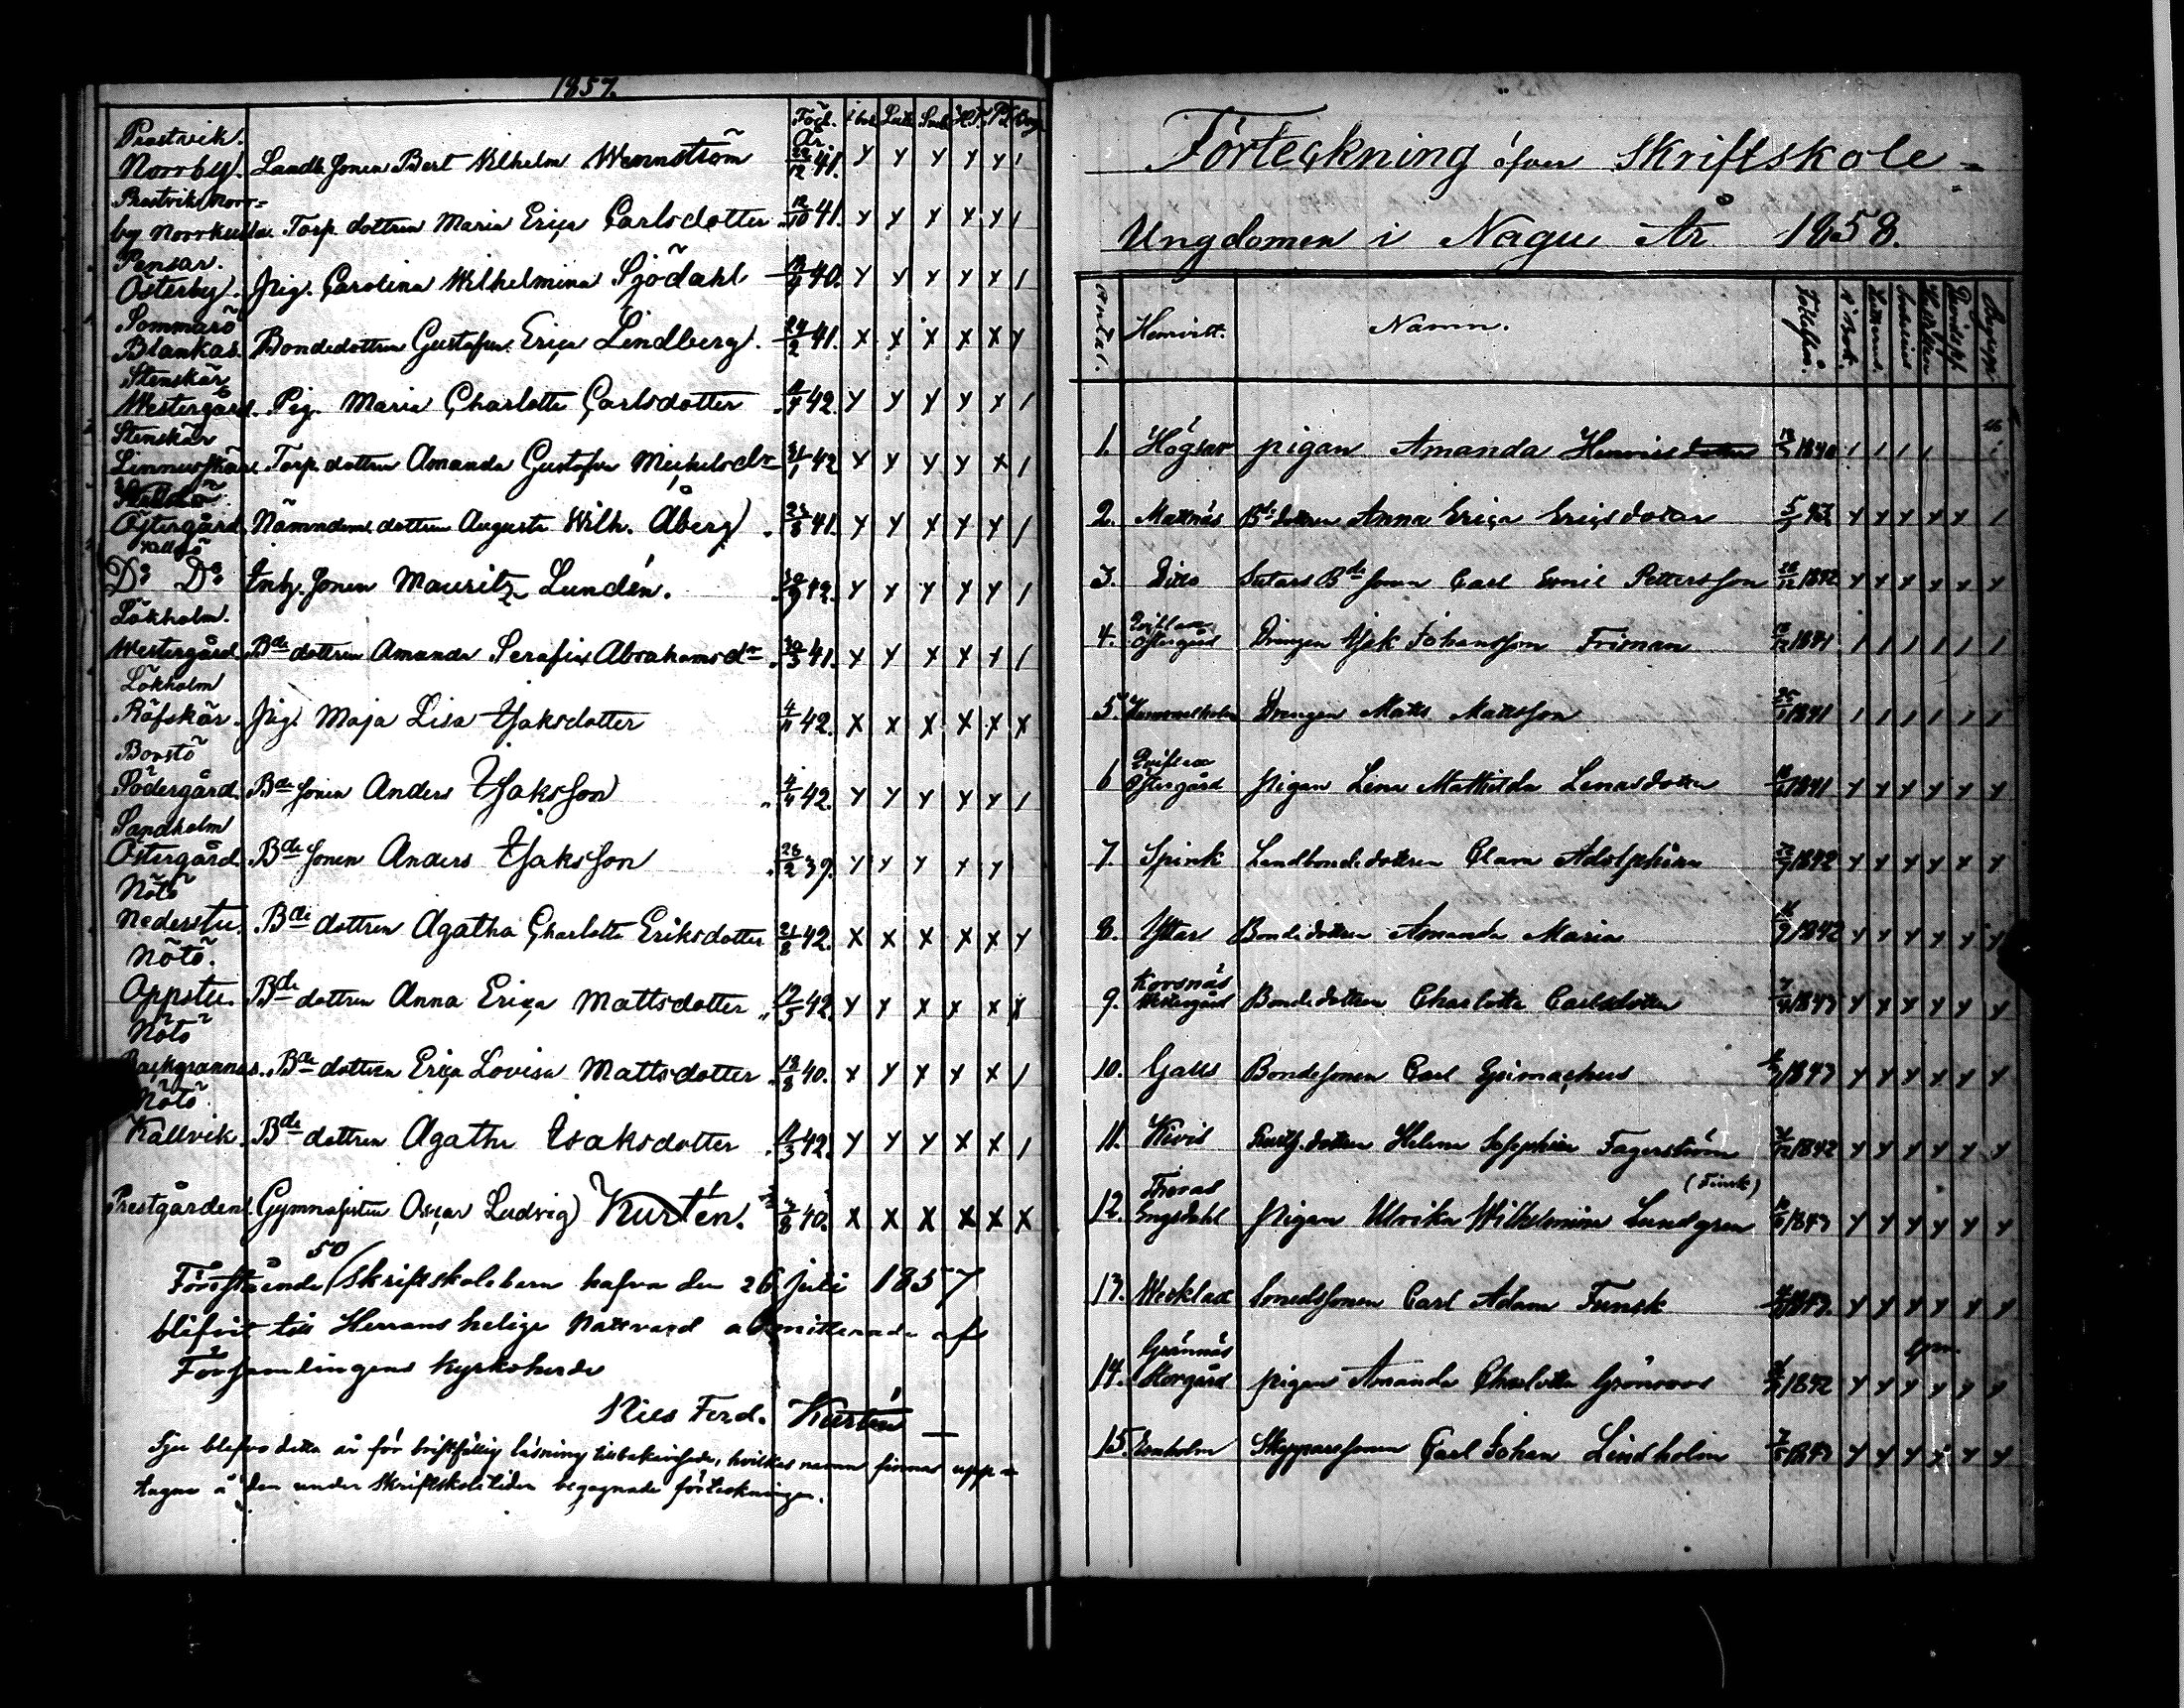 1857.
Föd. År i bok Lutk H.T.
Prostvik.
Norrby. Landb sonen Bert Wilhelm Wennström 12 41. y y y y y /
Prostvik Norr-
by Norrkulla Torp. dottren Maria Eriça Carlsdotter 10 41. y y y y y /
Pensar.
Österby. Pig. Carolina Wilhelmina Sjödahl 40. y y y y y /
Sommarö
Blankas. Bondedottren Gustafva Eriça Lindberg. 24/2 41. x x x x x y
Stenskär
Westergård. Pig. Maria Charlotta Carlsdotter 42. y y y y x /
Stenskär
Torp. dottren Amanda Gustafva Michelsdr 31/1 42 y y y y x /
Östergård. Nämndem. dottren Augusta Wilh. Åberg 23/8 41. y y y y y /
D:o D:o Inh. sonen Mauritz Lundén. 42. y y y y y /
Lökholm.
Westergård. Bde dottren Amanda Serafia Abrahamsdr 41. y y x x y /
Lökholm
Räfskär. Pig. Maja Lisa Isaksdotter 42. x x x x x x
Borstö
Södergård. Bde sonen Anders Isaksson 42. y y y y y /
Sandholm
Östergård. Bde sonen Anders Isaksson 28/2 39. y y y y y
Nötö
Nederstu. Bde dottren Agatha Charlotta Eriksdotter 21/8 42. x x x x x y
Nötö.
Oppstu. Bde dottren Anna Eriça Mattsdotter 42. y y x x x x
Nötö
Backgrannas. Bde dottren Eriça Lovisa Mattsdotter 18/8 40. x y y y x /
Nötö
Kallvik. Bde dottren Agatha Isaksdotter 42. y y y x x /
Prestgården. Gymnasisten Oscar Ludvig Kurtén. 40. x x x x x x
50
Förestående Skriftskolebarn hafva den 26 juli 1857
blifvit till Herrans helige Nattvard admitterade af
Församlingens Kyrkoherde
Nils Ferd. Kurtén
Sju blefvo detta år för bristfällig läsning tillbakavisade, hvilkas namn finnas upp=
tagne å den under Skriftskoletiden begagnade förteckningen.
Förteckning öfver Skriftskole=
Ungdomen i Nagu År 1858.
Antal. Hemvitt. Namn. i Bok.
1. Högsar pigan Amanda Henricsdotter 1840 / / / /
2. Mattnäs Bde dottren Anna Eriça Ericsdotter y y y y y /
3. Ditto Bde sonen Carl Emil Pettersson 1842 y y y y y y
4. Östergård Drengen Isak Johansson Friman 1841 / / / / / /
5. Drengen Matts Mattsson 1841 / / / / / /
6 Östergård pigan Lena Mathilda Lenasdotter 1841 y y y y y y
7. Spink Landbondedottren Clara Adolphina 1842 y y y y y y
8. Yttar Bondedottren Amanda Maria 1842 y y y y y y
9. Korsnäs
Westergård Bondedottren Charlotta Carlsdotter 1843 y y y y y y
10. Galls Bondesonen Carl Epimachus 1843 y y y y y y
11. Kivis dottren Helena Josephina Fagerström 1842 y y y y y y
(Finsk)
12. Engsdahl pigan Ulrika Wilhelmina Lundgren 1843 y y y y y y
13. Smedssonen Carl Adam Funck 1843. y y y y y y
14. Grännäs
Storgård pigan Amanda Charlotta Grönroos 1842 y y y y y y
15. Skepparesonen Carl Johan Lindholm 1843 y y y y y y